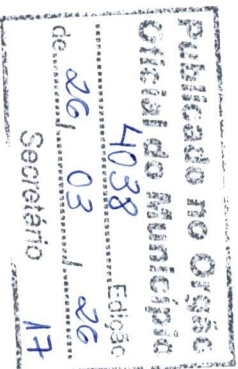 Publicado no Orgão
Oficial do Município
4038 Edição
de 26 / 03 / 26
17
Secretário